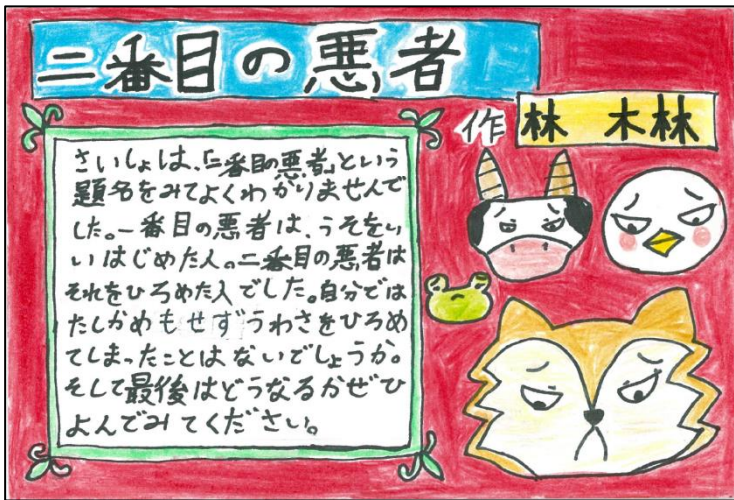 二番目の悪者
作 林 木林
さいしょは、「二番目の悪者」という
題名をみてよくわかりませんで
した。一番目の悪者は、うそをい
いはじめた人。二番目の悪者は
それをひろめた人でした。自分では
たしかめもせずうわさをひろめ
てしまったことはないでしょうか。
そして最後はどうなるかぜひ
よんでみてください。